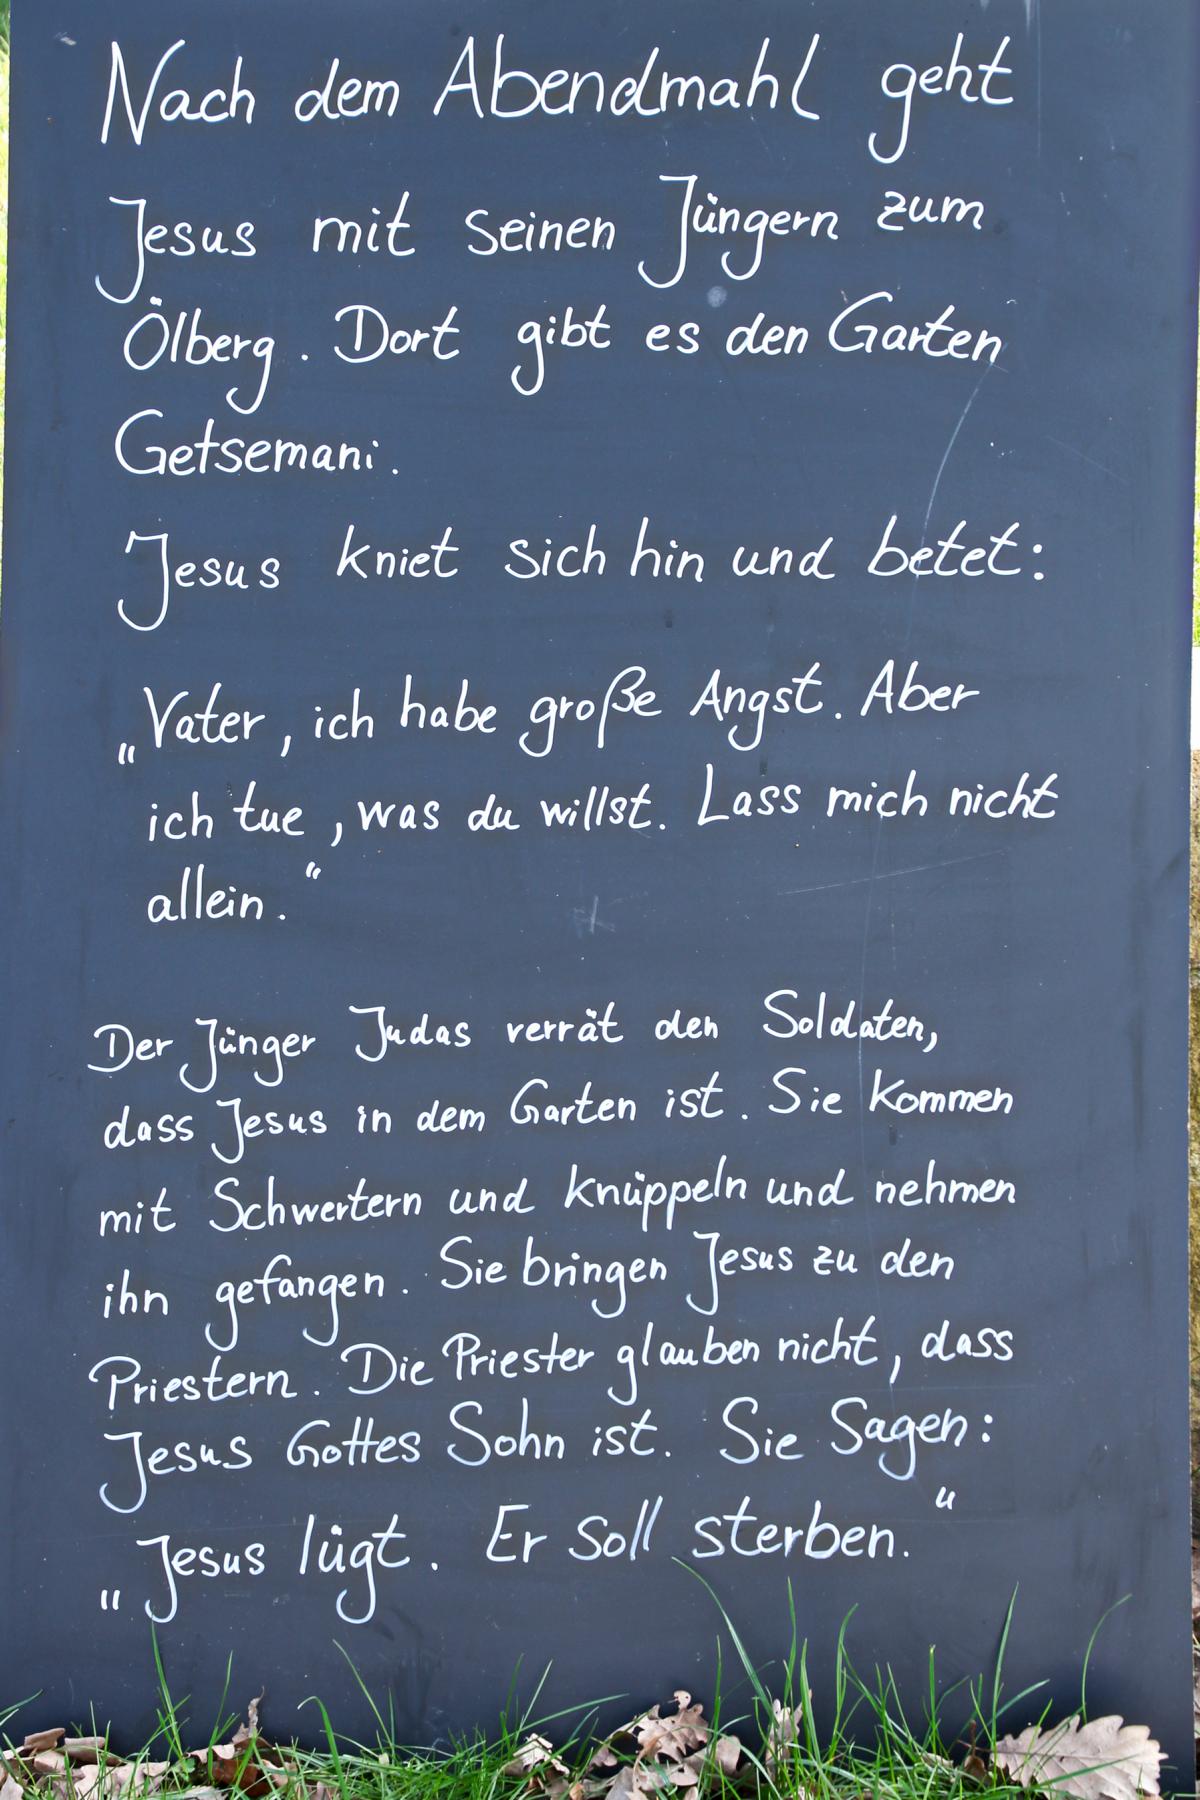 Nach dem Abendmahl geht
Jesus mit seinen Jüngern zum
Ölberg. Dort gibt es den Garten
Getsemani.
Jesus kniet sich hin und betet:
„Vater, ich habe große Angst. Aber
ich tue, was du willst. Lass mich nicht
allein.“
Der Jünger Judas verrät den Soldaten,
dass Jesus in dem Garten ist. Sie kommen
mit Schwertern und Knüppeln und nehmen
ihn gefangen. Sie bringen Jesus zu den
Priestern. Die Priester glauben nicht, dass
Jesus Gottes Sohn ist. Sie Sagen:
„Jesus lügt. Er soll sterben.“